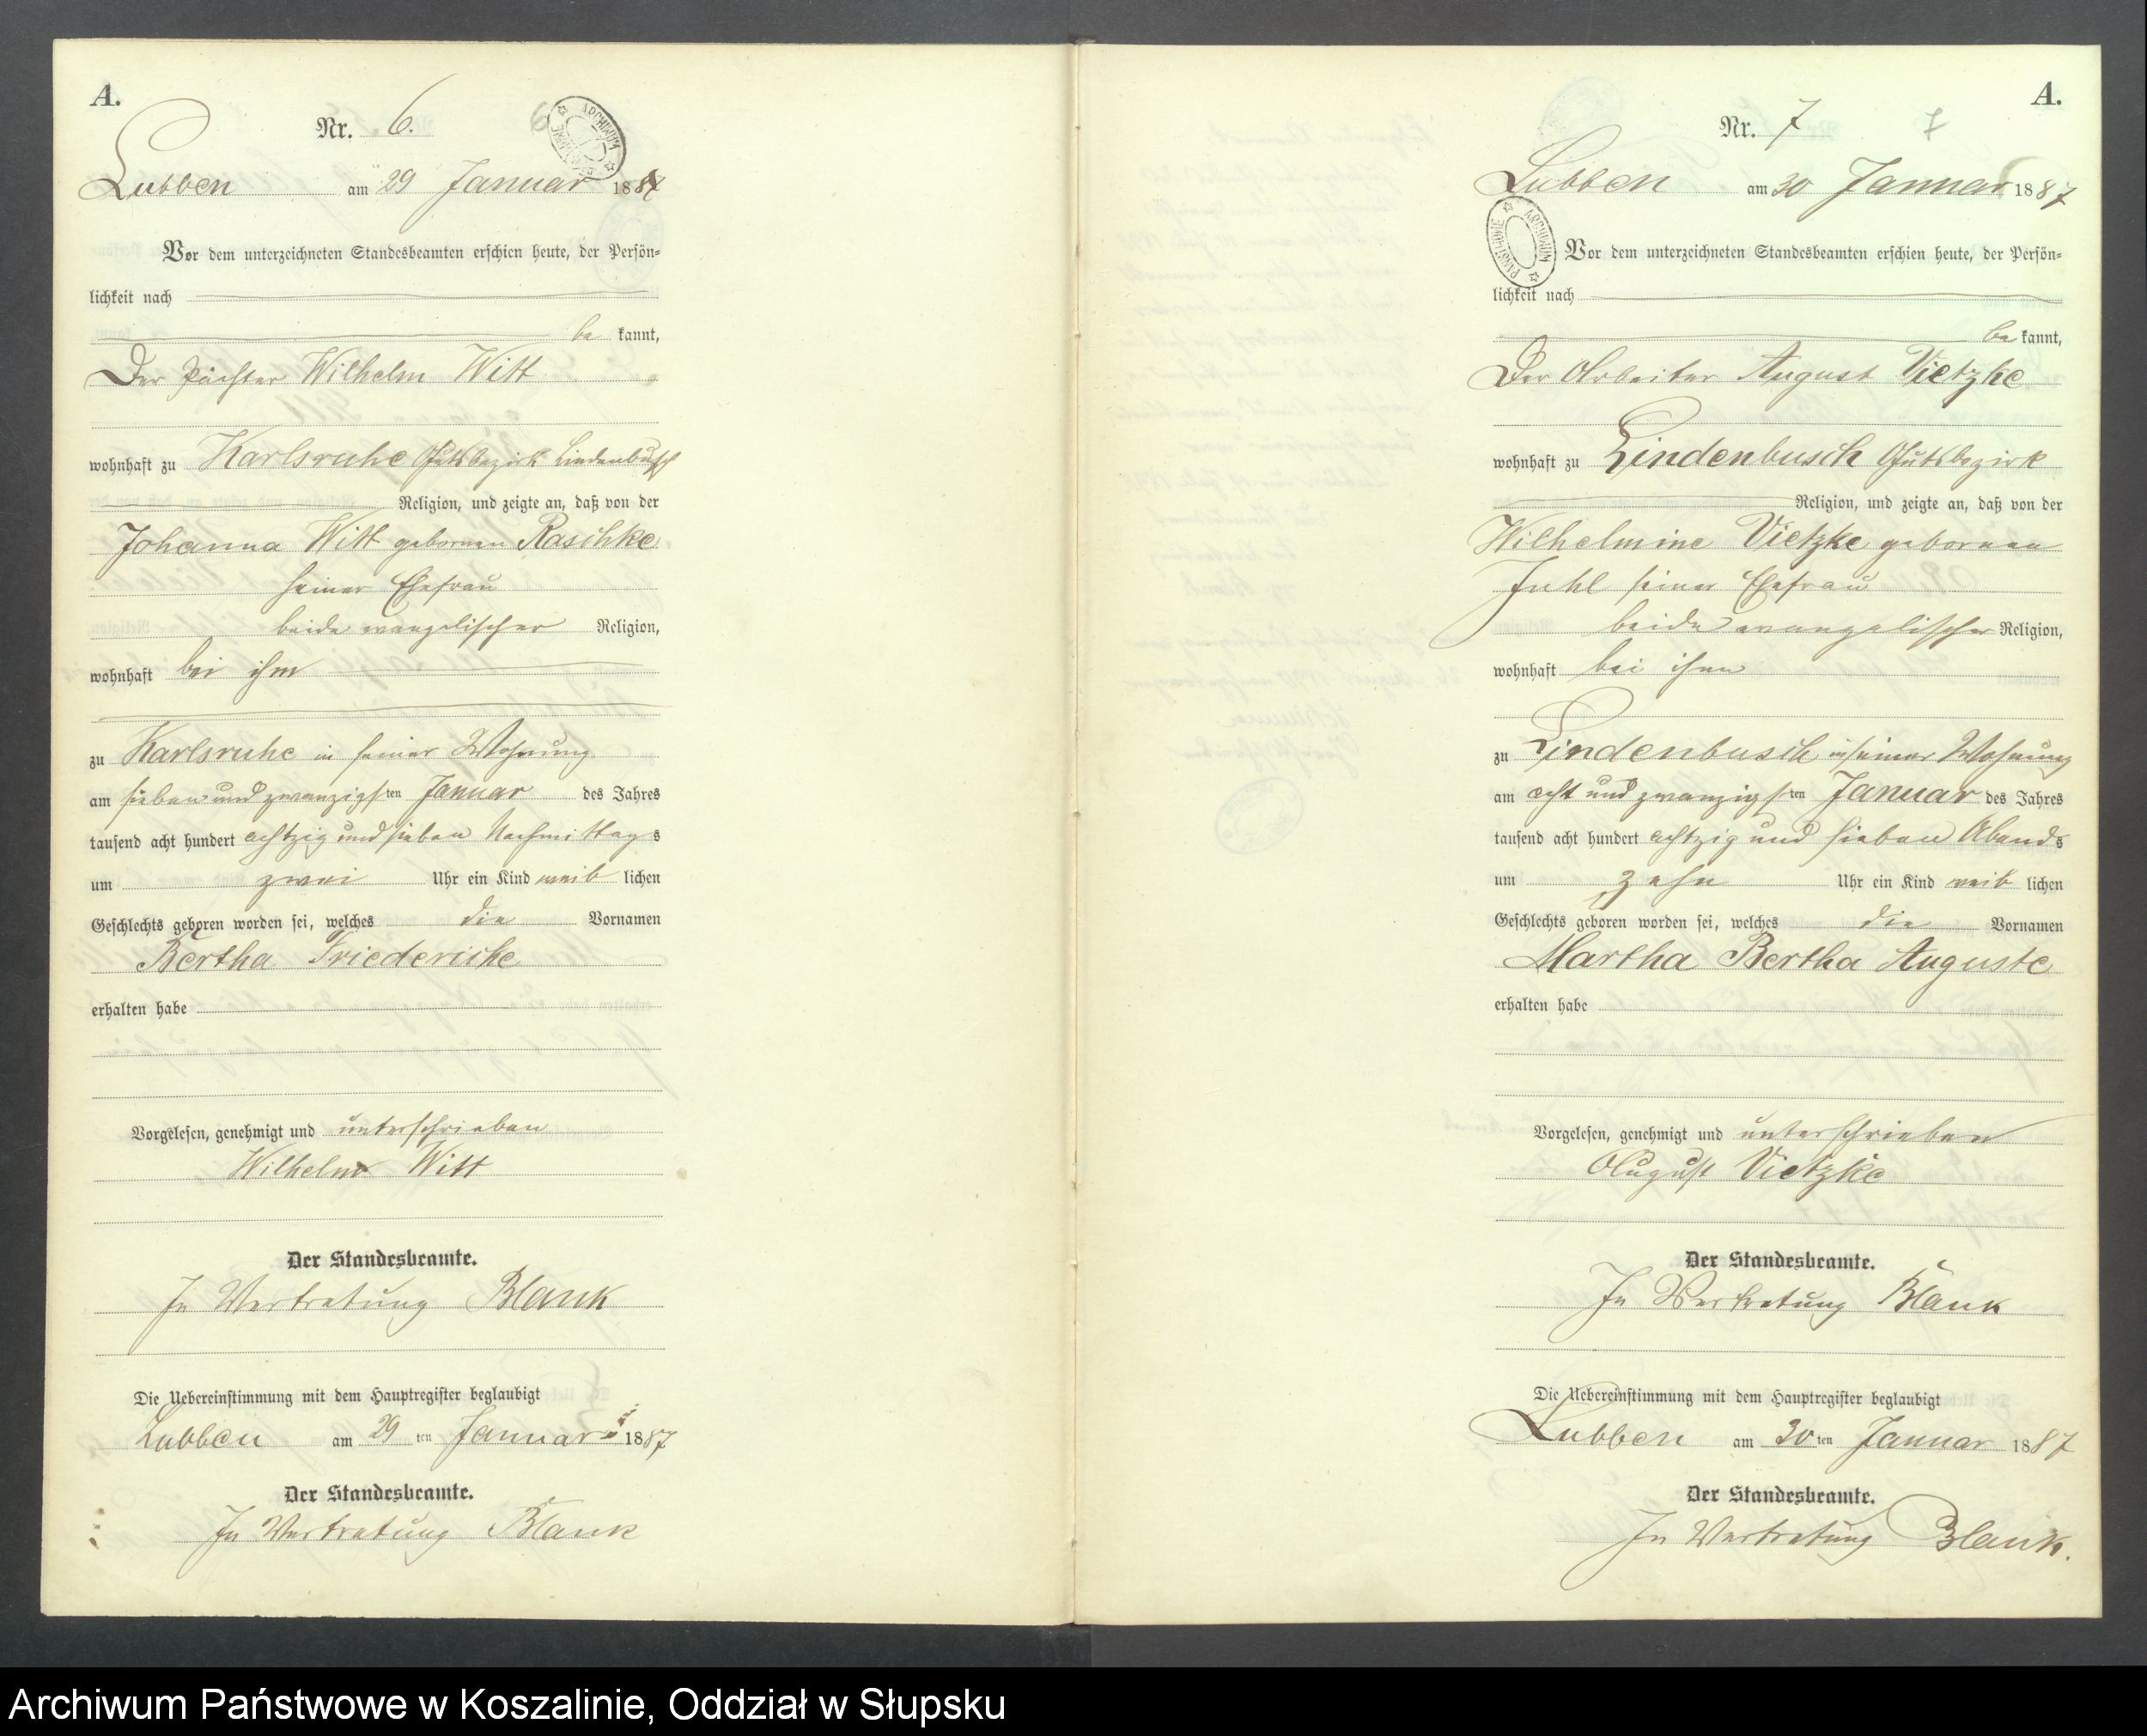 A.
Nr. 6. 6
ARCHIWUM
Lubben am 29 Januar 1887
Vor dem unterzeichneten Standesbeamten erschien heute, der Persön-
lichkeit nach
be kannt,
Der Pächter Wilhelm Witt
wohnhaft zu Karlsruhe Gutsbezirk Lindenbusch
Religion, und zeigte an, daß von der
Johanna Witt gebornen Raschke
seiner Ehefrau
beide evangelischer Religion,
wohnhaft bei ihm
zu Karlsruhe in seiner Wohnung
am sieben und zwanzigsten Januar des Jahres
tausend acht hundert achtzig und sieben Nachmittags
um zwei Uhr ein Kind weib lichen
Geschlechts geboren worden sei, welches die Vornamen
Bertha Friedericke
erhalten habe
Vorgelesen, genehmigt und unterschrieben
Wilhelm Witt
Der Standesbeamte.
In Vertretung Blank
Die Uebereinstimmung mit dem Hauptregister beglaubigt
Lubben am 29 ten Januar 1887
Der Standesbeamte.
In Vertretung Blank
A.
Nr. 7 7
Lubben am 30 Januar 1887
ARCHIWUM PAŃSTWOWE
Vor dem unterzeichneten Standesbeamten erschien heute, der Persön-
lichkeit nach
be kannt,
Der Arbeiter August Vietzke
wohnhaft zu Lindenbusch Gutsbezirk
Religion, und zeigte an, daß von der
Wilhelmine Vietzke gebornen
Juhl seiner Ehefrau
beide evangelischer Religion,
wohnhaft bei ihm
zu Lindenbusch in seiner Wohnung
am acht und zwanzigsten Januar des Jahres
tausend acht hundert achtzig und sieben Abends
um zehn Uhr ein Kind weib lichen
Geschlechts geboren worden sei, welches die Vornamen
Martha Bertha Auguste
erhalten habe
Vorgelesen, genehmigt und unterschrieben
August Vietzke
Der Standesbeamte.
In Vertretung Blank
Die Uebereinstimmung mit dem Hauptregister beglaubigt
Lubben am 30 ten Januar 1887
Der Standesbeamte.
In Vertretung Blank.
Archiwum Państwowe w Koszalinie, Oddział w Słupsku